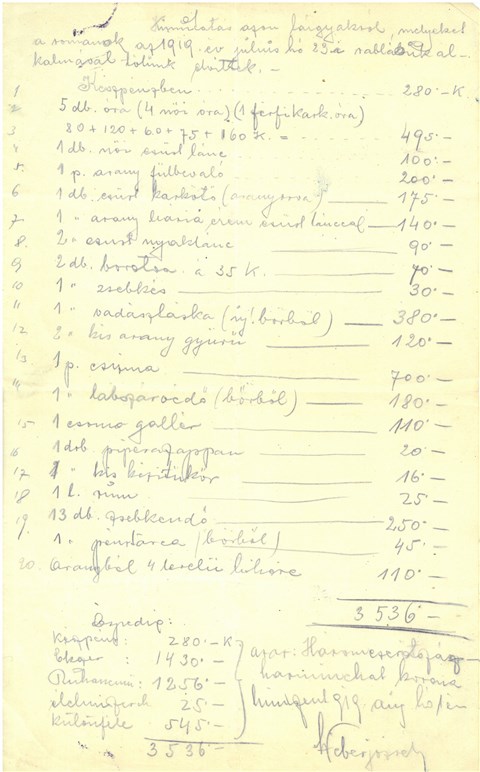 Kimutatás azon tárgyakról, melyeket
a románok az 1919. év julius hó 29-i rablásuk al-
kalmával tőlünk elvittek. –
1 Készpénzben 280·– K
2 5 db. óra (4 női óra) (1 férfi kark. óra)
3 80 + 120 + 60 + 75 + 160 K. = 495·–
4 1 db. női ezüst lánc 100·–
5 1 p. arany fülbevaló 200·–
6 1 db. ezüst karkötő 175·–
7 1 " arany érem ezüst lánccal 140·–
8. 2 " ezüst nyaklánc 90·–
9 2 db. borotva á 35 K. 70·–
10 1 " zsebkés 30·–
11 1 " vadásztáska (új! bőrből) 380·–
12 2 " kis arany gyűrű 120·–
13 1 p. csizma 700·–
14 1 " lábszárvédő (bőrből) 180·–
15 1 gallér 110·–
16 1 drb. pipereszappan 20·–
17 1 " kis 16·–
18 1 l. rum 25·–
19. 13 db. zsebkendő 250·–
1 " pénztárca (bőrből) 45·–
20. Aranyból 4 110·–
3536·–
Összedig:
Készpénz: 280·– K
Ékszer: 1430·–
Ruhanemü: 1256·–
25·–
különféle 545·–
3536·–
azaz: Háromezerötszáz-
harminchat korona